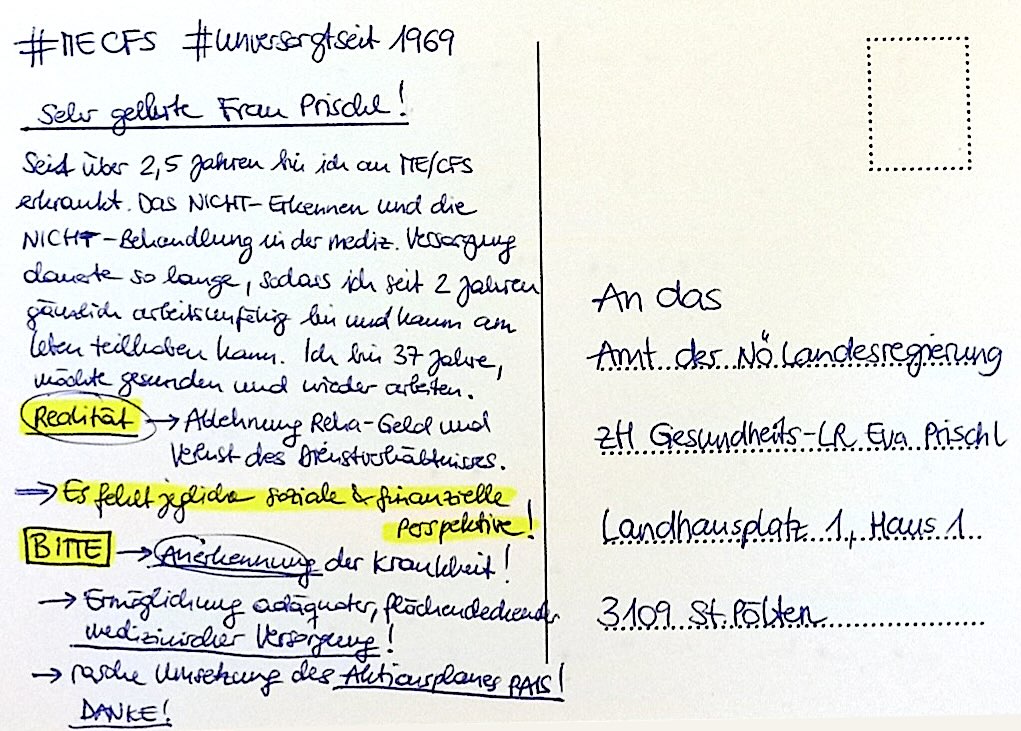 #MECFS #unversorgtseit 1969
Sehr geehrte Frau Prischl!
Seit über 2,5 Jahren bin ich an ME/CFS
erkrankt. Das NICHT-Erkennen und die
NICHT-Behandlung in der mediz. Versorgung
dauerte so lange, sodass ich seit 2 Jahren
gänzlich arbeitsunfähig bin und kaum am
Leben teilhaben kann. Ich bin 37 Jahre,
möchte gesunden und wieder arbeiten.
Realität → Ablehnung Reha-Geld und
Verlust des Dienstverhältnisses.
⇒ Es fehlt jegliche soziale & finanzielle
Perspektive!
BITTE → Anerkennung der Krankheit!
→ Ermöglichung adäquater, flächendeckender
medizinischer Versorgung!
→ rasche Umsetzung des Aktionsplanes PAIS!
DANKE!
An das
Amt der NÖ Landesregierung
zH Gesundheits-LR Eva Prischl
Landhausplatz 1, Haus 1
3109 St. Pölten